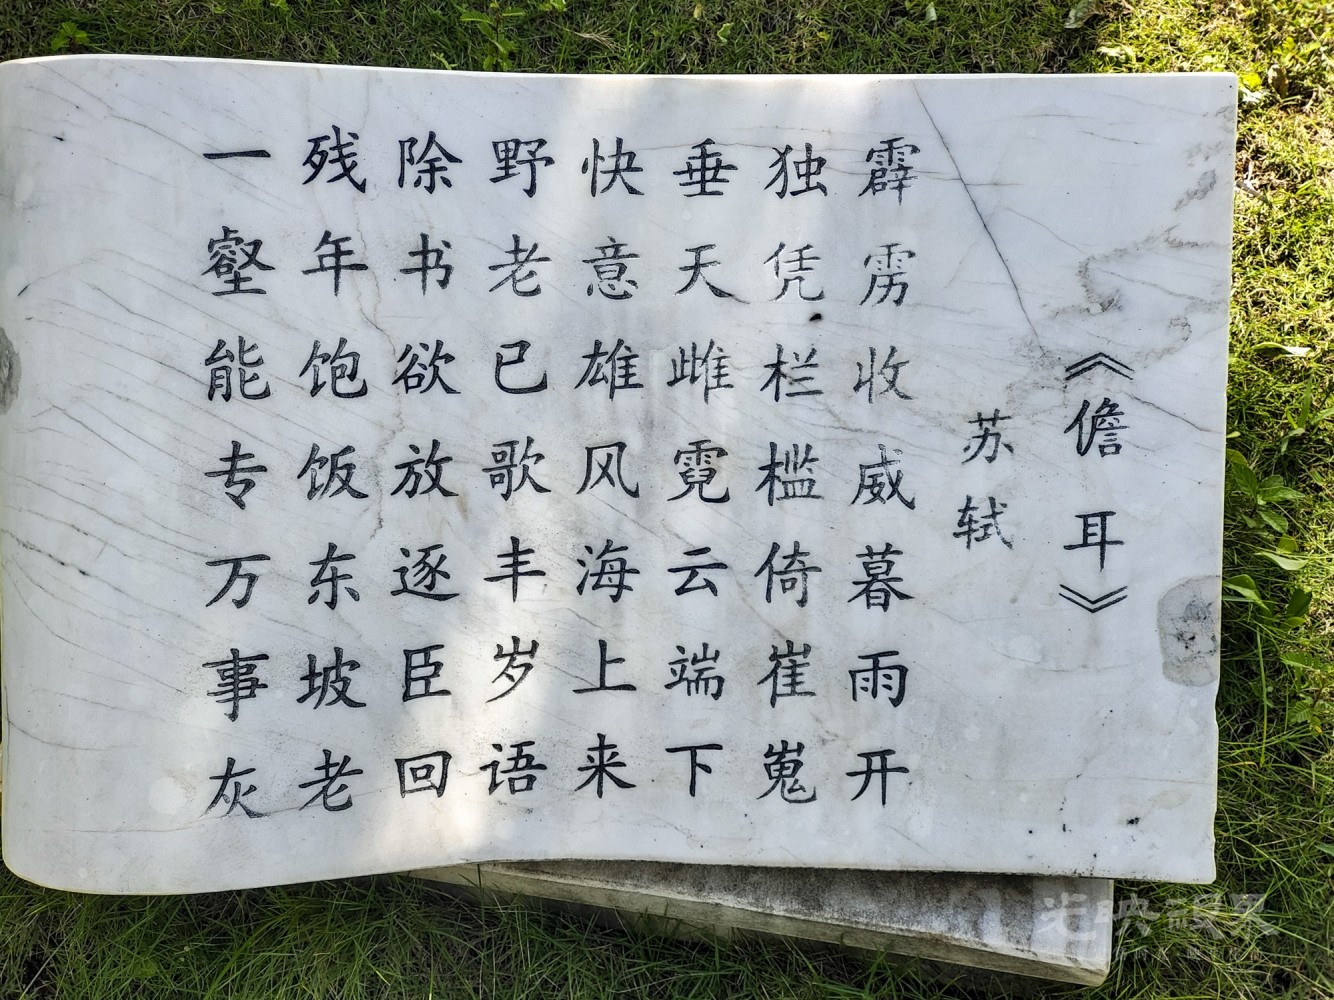 《儋耳》
苏轼
霹雳收威暮雨开
独凭栏槛倚崔嵬
垂天雌霓云端下
快意雄风海上来
野老已歌丰岁语
除书欲放逐臣回
残年饱饭东坡老
一壑能专万事灰
光映视界